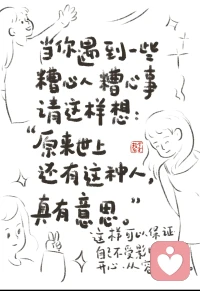 当你遇到一些
糟心人糟心事
请这样想：
“原来世上
还有这种人，
真有意思。”
这样可以保证
自己不受影
开心.从容